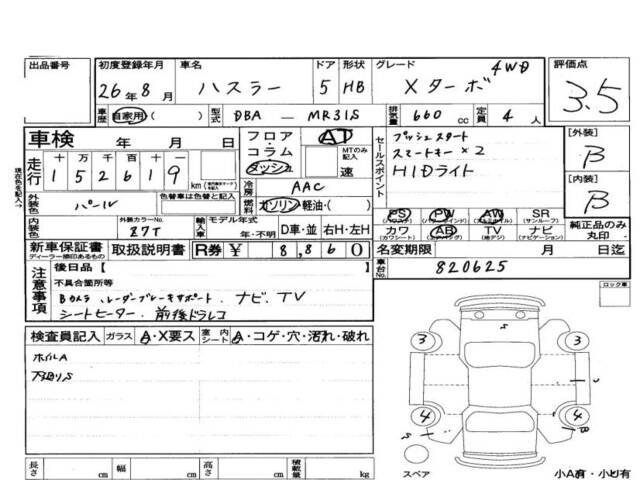 出品番号 初度登録年月 車名 ドア 形状 グレード 評価点
26年8月 ハスラー 5 HB Xターボ 4WD 3.5
車歴 自家用 ( ) 型式 DBA - MR31S 排気量 660 cc 定員 4 人
車検 年 月 日
フロア・コラム・ダッシュ AT MTのみ記入 速
セールスポイント
プッシュスタート
スマートキー×2
HIDライト
[外装] B
[内装] B
現在色を記入→
走行 十 万 千 百 十 一
1 5 2 6 1 9 km
冷房 AAC
外装色 パール 色替車は色替と記入
燃料 ガソリン・軽油・( )
内装色 外装カラーNo. 87T
輸入車 モデル年式 年・不明 D車・並 右H・左H
PS PW AW SR (サンルーフ)
カワ (カワシート) AB TV (地デジ) ナビ (ナビゲーション)
純正品のみ丸印
新車保証書 ディーラー捺印あるもの 取扱説明書 R券 ¥ 8,860 名変期限 月 日迄
車台No. 820625
注意事項
後日品 [ ]
不具合箇所等
Bカメラ、レーダーブレーキサポート、ナビ、TV
シートヒーター、前後ドラレコ
ロック車
検査員記入 ガラス A・X要ス 室内シート A・コゲ・穴・汚れ・破れ
ホイルA
長さ cm 幅 cm 高さ cm 積載量 kg
S
3 3
4 4
S B
スペア
小A有・小U有